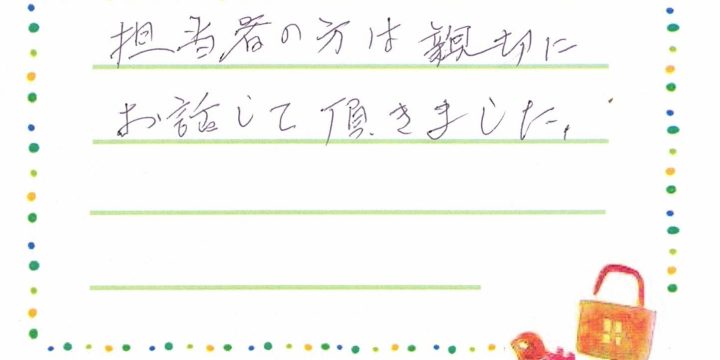 担当者の方は親切に
お話して頂きました。